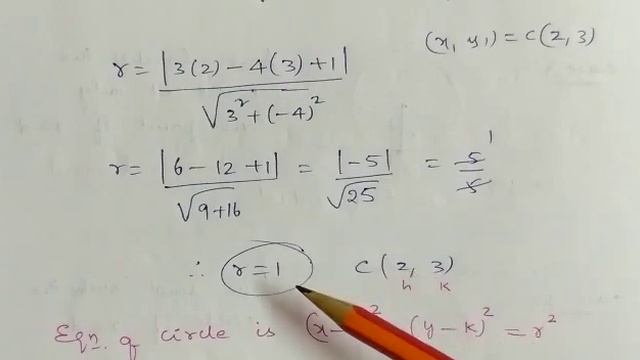 (x, y₁) = C(2, 3)
r = |3(2) - 4(3) + 1| / √(3² + (-4)²)
r = |6 - 12 + 1| / √(9 + 16) = |-5| / √25 = 5/5 1
∴ r = 1 C(2, 3)
h k
Eqn. of circle is (x- ² (y - k)² = r²